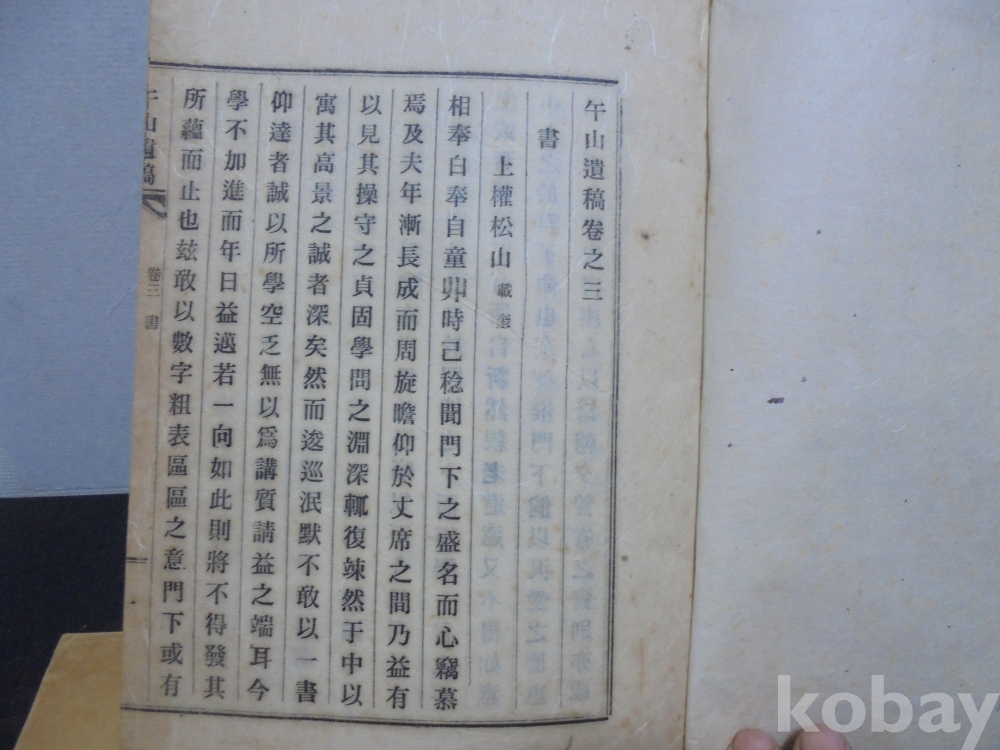 午山遺稿卷之三
書
上權松山 載奎
相奉白奉自童丱時已稔聞門下之盛名而心竊慕
焉及夫年漸長成而周旋瞻仰於丈席之間乃益有
以見其操守之貞固學問之淵深輒復竦然于中以
寓其高景之誠者深矣然而逡巡泯默不敢以一書
仰達者誠以所學空乏無以爲講質請益之端耳今
學不加進而年日益邁若一向如此則將不得發其
所蘊而止也玆敢以數字粗表區區之意門下或有
午山遺稿 卷三 書
kobay